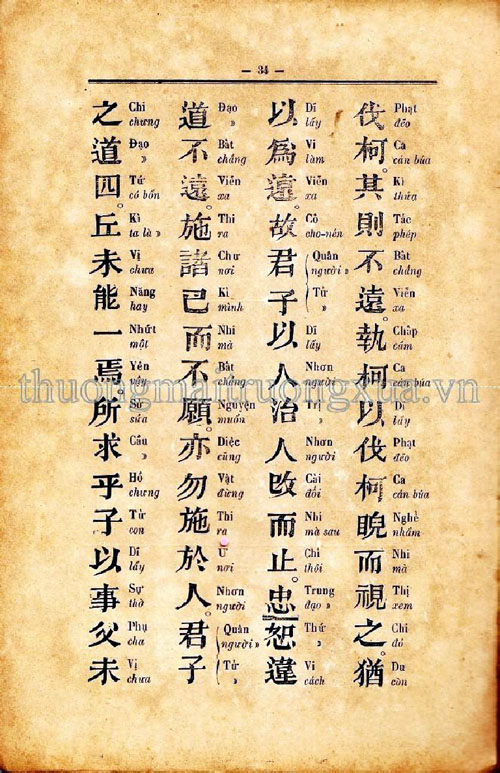 — 34 —
伐柯。其則不遠。執柯以伐柯睨而視之。猶
Phạt đẽo
Ca cán búa
Kì thửa
Tắc phép
Bất chẳng
Viễn xa
Chấp cầm
Ca cán búa
Dĩ lấy
Phạt đẽo
Ca cán búa
Nghề nhắm
Nhi mà
Thị xem
Chi đó
Du còn
以爲遠。故君子以人治人改而止。忠恕違
Dĩ lấy
Vi làm
Viễn xa
Cố cho-nên
Quân người »
Tử »
Dĩ lấy
Nhơn người
Trị »
Nhơn người
Cải đổi
Nhi mà sau
Chỉ thôi
Trung đạo »
Thứ »
Vi cách
道不遠。施諸己而不願。亦勿施於人。君子
Đạo »
Bất chẳng
Viễn xa
Thi ra
Chư nơi
Kỉ mình
Nhi mà
Bất chẳng
Nguyện muốn
Diệc cũng
Vật đừng
Thi ra
Ư nơi
Nhơn người
Quân người »
Tử »
之道四。丘未能一焉所求乎子以事父未
Chi chưng
Đạo »
Tứ có bốn
Kì ta là »
Vị chưa
Năng hay
Nhứt một
Yên vậy
Sở sửa
Cầu »
Hồ chưng
Tử con
Dĩ lấy
Sự thờ
Phụ cha
Vị chưa
thuongmaitruongxua.vn